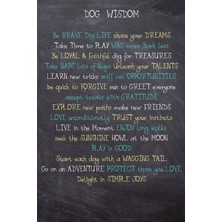 DOG WISDOM
Be BRAVE Dig LIFE share your DREAMS
Take Time to PLAY WAG more Bark less
Be LOYAL & Faithful dig for TREASURES
Take NAPS lots of Naps Unleash your TALENTS
LEARN new tricks sniff out OPPORTUNITIES
be quick to FORGIVE run to GREET everyone
accept treats with GRATITUDE
EXPLORE new paths make new FRIENDS
LOVE unconditionally TRUST your instincts
LIVE in the Moment ENJOY long walks
seek the SUNSHINE HOWL at the MOON
PLAY is GOOD
Start each day with a WAGGING TAIL
Go on an ADVENTURE PROTECT those you LOVE
Delight in SIMPLE JOYS